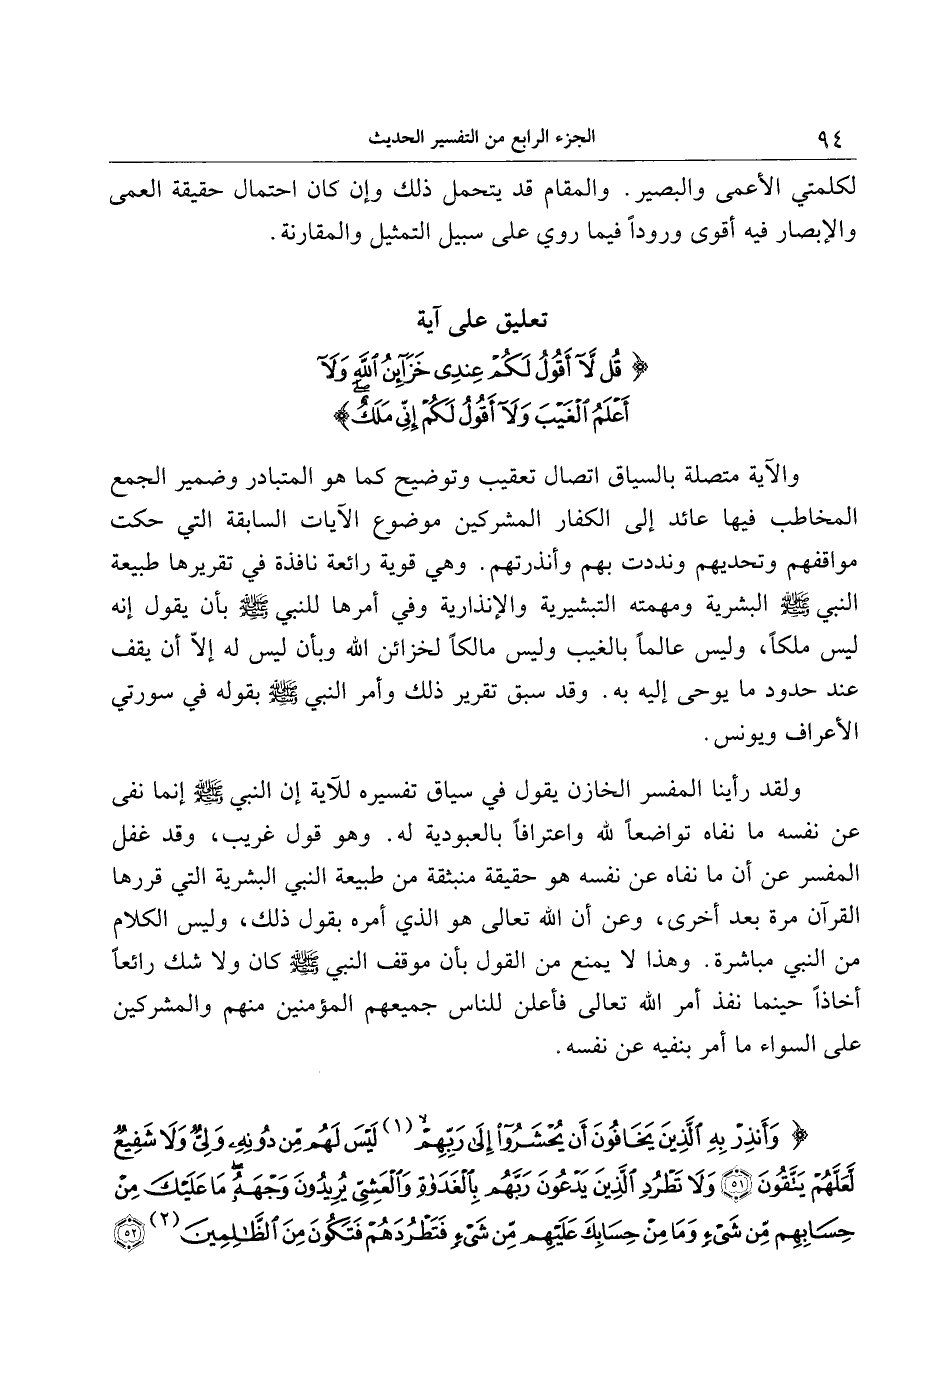 ٩٤ الجزء الرابع من التفسير الحديث
لكلمتي الأعمى والبصير. والمقام قد يتحمل ذلك وإن كان احتمال حقيقة العمى
والإبصار فيه أقوى وروداً فيما روي على سبيل التمثيل والمقارنة.
تعليق على آية
﴿ قُل لَّآ أَقُولُ لَكُمْ عِندِى خَزَآئِنُ ٱللَّهِ وَلَآ
أَعْلَمُ ٱلْغَيْبَ وَلَآ أَقُولُ لَكُمْ إِنِّى مَلَكٌۖ ﴾
والآية متصلة بالسياق اتصال تعقيب وتوضيح كما هو المتبادر وضمير الجمع
المخاطب فيها عائد إلى الكفار المشركين موضوع الآيات السابقة التي حكت
مواقفهم وتحديهم ونددت بهم وأنذرتهم. وهي قوية رائعة نافذة في تقريرها طبيعة
النبي ﷺ البشرية ومهمته التبشيرية والإنذارية وفي أمرها للنبي ﷺ بأن يقول إنه
ليس ملكاً، وليس عالماً بالغيب وليس مالكاً لخزائن الله وبأن ليس له إلاّ أن يقف
عند حدود ما يوحى إليه به. وقد سبق تقرير ذلك وأمر النبي ﷺ بقوله في سورتي
الأعراف ويونس.
ولقد رأينا المفسر الخازن يقول في سياق تفسيره للآية إن النبي ﷺ إنما نفى
عن نفسه ما نفاه تواضعاً لله واعترافاً بالعبودية له. وهو قول غريب، وقد غفل
المفسر عن أن ما نفاه عن نفسه هو حقيقة منبثقة من طبيعة النبي البشرية التي قررها
القرآن مرة بعد أخرى، وعن أن الله تعالى هو الذي أمره بقول ذلك، وليس الكلام
من النبي مباشرة. وهذا لا يمنع من القول بأن موقف النبي ﷺ كان ولا شك رائعاً
أخاذاً حينما نفذ أمر الله تعالى فأعلن للناس جميعهم المؤمنين منهم والمشركين
على السواء ما أمر بنفيه عن نفسه.
﴿ وَأَنذِرْ بِهِ ٱلَّذِينَ يَخَافُونَ أَن يُحْشَرُوٓا۟ إِلَىٰ رَبِّهِمْۙ (١) لَيْسَ لَهُم مِّن دُونِهِۦ وَلِىٌّ وَلَا شَفِيعٌ
لَّعَلَّهُمْ يَتَّقُونَ ٥١ وَلَا تَطْرُدِ ٱلَّذِينَ يَدْعُونَ رَبَّهُم بِٱلْغَدَوٰةِ وَٱلْعَشِىِّ يُرِيدُونَ وَجْهَهُۥۖ مَا عَلَيْكَ مِنْ
حِسَابِهِم مِّن شَىْءٍ وَمَا مِنْ حِسَابِكَ عَلَيْهِم مِّن شَىْءٍ فَتَطْرُدَهُمْ فَتَكُونَ مِنَ ٱلظَّٰلِمِينَ (٢) ٥٢